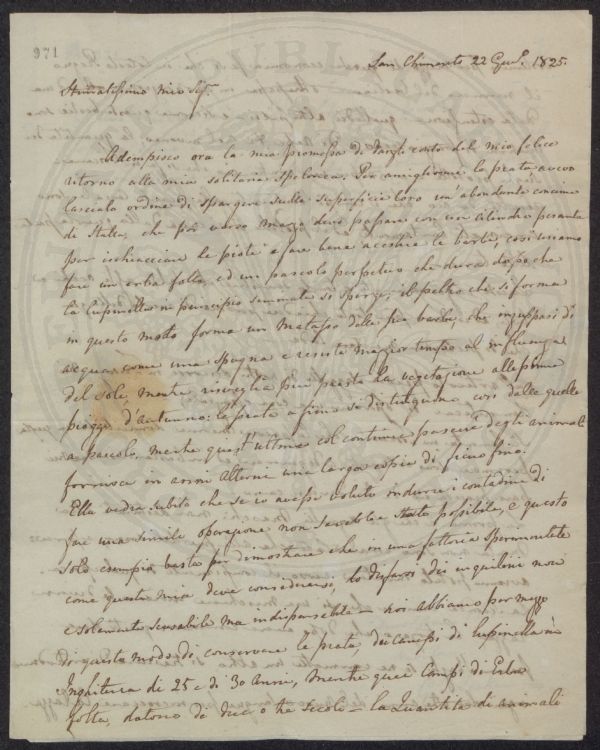 971
San Chimento 22 Gen. 1825.
Stimatissimo mio Sigr.
Adempisco ora la mia promessa di dargli conto del mio felice
ritorno alla mia solitaria Spelonca. Per migliorare le prata avevo
lasciato ordine di spargere sulla superficie loro un' abondante concime
di Stalla, che poi verso Marzo devo passare con un cilindro pesante
per ischiacciare le piote e fare bene accestire le barbe, così usiamo
fare un erba folta, ed un pascolo perpetuo che dura dopo che
la lupinella in principio seminata si sperge; il peltro che si forma
in questo modo forma un Matasso delle più barbe, che inzuppasi di
acqua come una spugna e resiste maggior tempo al influenza
del sole, mentre risveglia più presto la vegetazione alle prime
piogge d'autunno: le prata a fieno si distinguono così dalle quelle
a pascolo, mentre quest' ultime col continuo pascere degli animali
fornisca in anni alterni una larga copia di fieno fino.
Ella vedrà subito che se io avessi voluto indurre i contadini di
fare una simile operazione non sarebbe stata possibile, e questo
solo esempio basta per dimostrare che in una fattoria sperimentale
come questa mia deve considerarsi, lo disfarsi dei inquilini non
è solamente scusabile ma indispensabile — noi abbiamo per mezzo
di questo modo di conservare le prata, dei campi di lupinella in
Inghilterra di 25 e di 30 Anni, mentre quei Campi di Erba
folta, datono di due o tre secoli — la quantità di animali